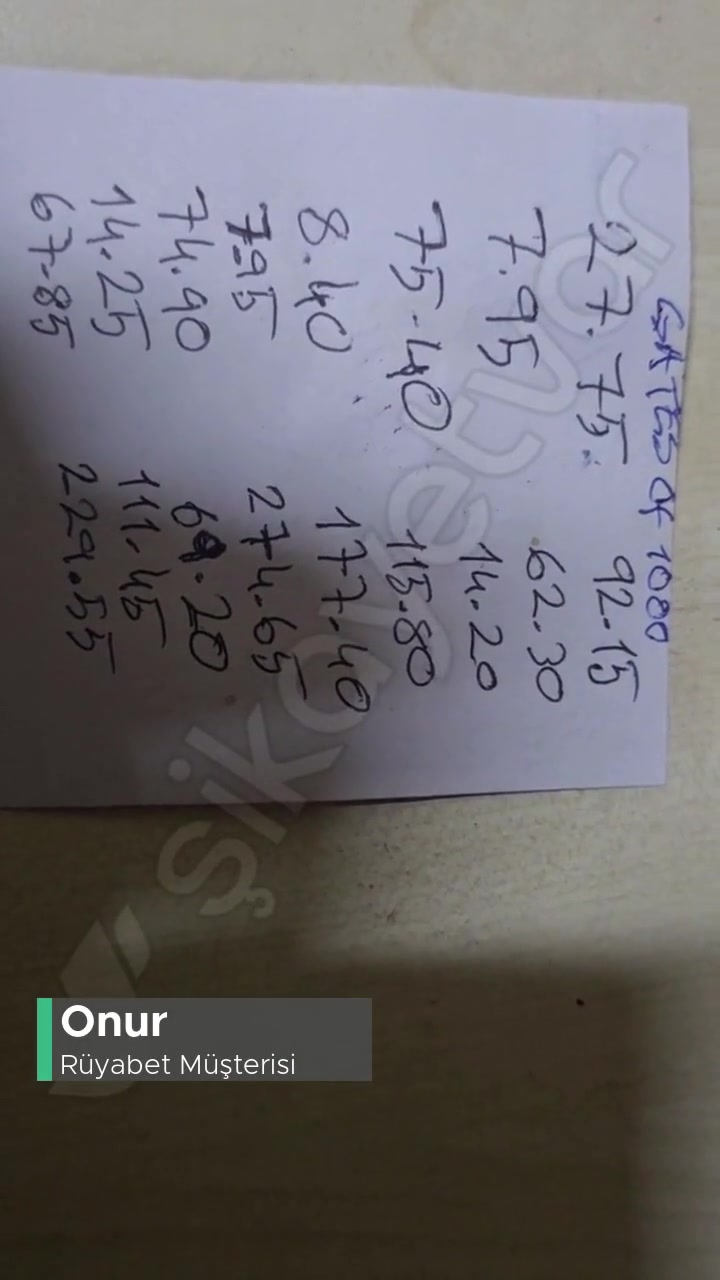 GATES OF 1000
27.75 92.15
7.95 62.30
75.40 14.20
8.40 115.80
7.95 177.40
74.90 274.65
14.25 69.20
67.85 111.45
229.55
Şikayetvar
Onur
Rüyabet Müşterisi